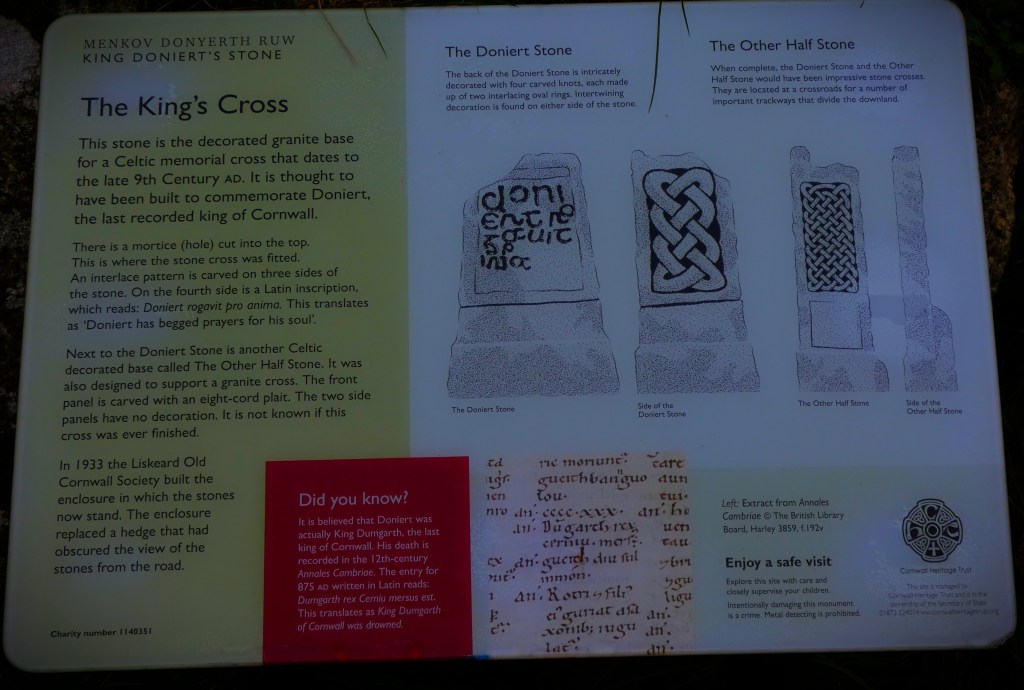 MENKOV DONYERTH RUW
KING DONIERT'S STONE
The King's Cross
This stone is the decorated granite base
for a Celtic memorial cross that dates to
the late 9th Century AD. It is thought to
have been built to commemorate Doniert,
the last recorded king of Cornwall.
There is a mortice (hole) cut into the top.
This is where the stone cross was fitted.
An interlace pattern is carved on three sides of
the stone. On the fourth side is a Latin inscription,
which reads: Doniert rogavit pro anima. This translates
as 'Doniert has begged prayers for his soul'.
Next to the Doniert Stone is another Celtic
decorated base called The Other Half Stone. It was
also designed to support a granite cross. The front
panel is carved with an eight-cord plait. The two side
panels have no decoration. It is not known if this
cross was ever finished.
In 1933 the Liskeard Old
Cornwall Society built the
enclosure in which the stones
now stand. The enclosure
replaced a hedge that had
obscured the view of the
stones from the road.
Charity number 1140351
Did you know?
It is believed that Doniert was
actually King Dumgarth, the last
king of Cornwall. His death is
recorded in the 12th-century
Annales Cambriae. The entry for
875 AD written in Latin reads:
Dumgarth rex Cerniu mersus est.
This translates as King Dumgarth
of Cornwall was drowned.
The Doniert Stone
The back of the Doniert Stone is intricately
decorated with four carved knots, each made
up of two interlacing oval rings. Intertwining
decoration is found on either side of the stone.
The Other Half Stone
When complete, the Doniert Stone and the Other
Half Stone would have been impressive stone crosses.
They are located at a crossroads for a number of
important trackways that divide the downland.
doni
The Doniert Stone
Side of the
Doniert Stone
The Other Half Stone
Side of the
Other Half Stone
nie moriunt. care
gueith banguo aun
an. cccc.xxx. an.
an. Dugarth rex
an. gueith diu sul
an. Rotri
Left: Extract from Annales
Cambriae © The British Library
Board, Harley 3859, f.192v
Enjoy a safe visit
Explore this site with care and
closely supervise your children.
Intentionally damaging this monument
is a crime. Metal detecting is prohibited.
Cornwall Heritage Trust
This site is managed by
Cornwall Heritage Trust and is in the
ownership of the Secretary of State